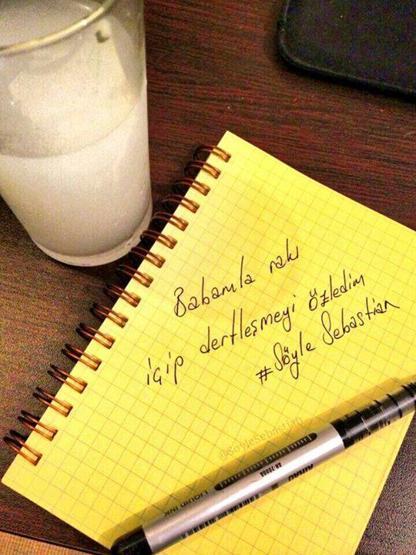 Babamla rakı
içip dertleşmeyi özledim
#Söyle Sebastian
LIQUID INK